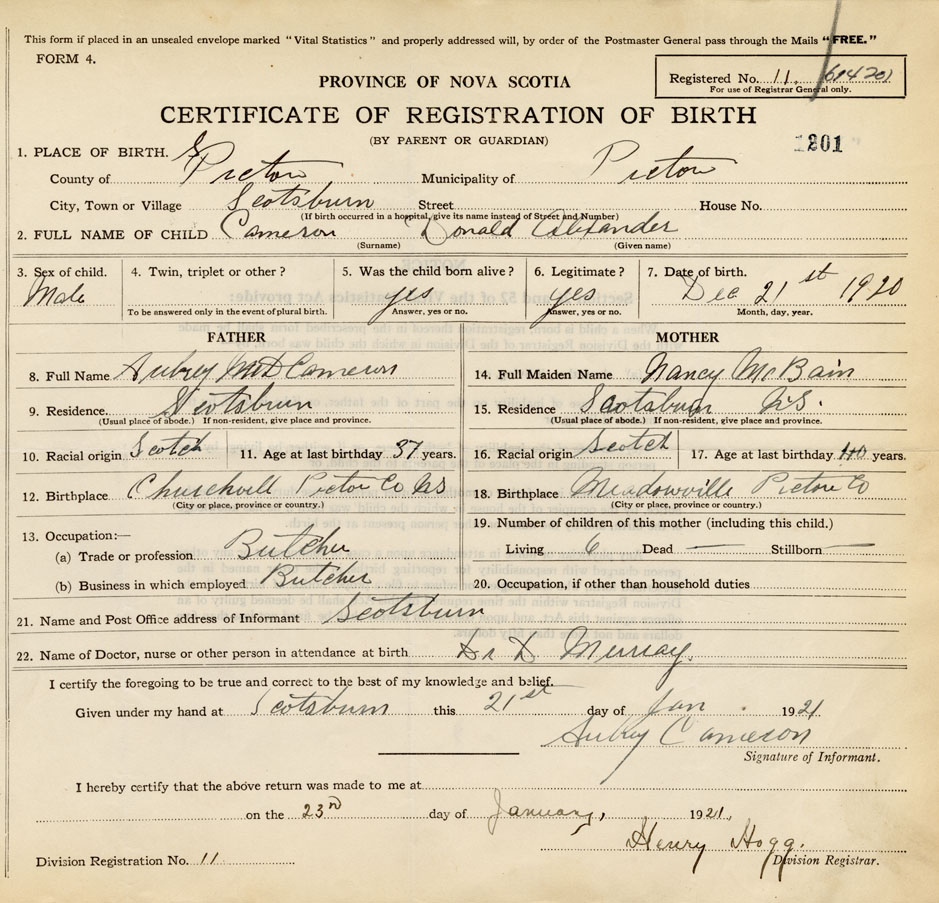 This form if placed in an unsealed envelope marked "Vital Statistics" and properly addressed will, by order of the Postmaster General pass through the Mails "FREE."
FORM 4.
Registered No. 11.
For use of Registrar General only.
PROVINCE OF NOVA SCOTIA
CERTIFICATE OF REGISTRATION OF BIRTH
(BY PARENT OR GUARDIAN)
1201
1. PLACE OF BIRTH.
County of Pictou Municipality of Pictou
City, Town or Village Scotsburn Street House No.
(If birth occurred in a hospital, give its name instead of Street and Number)
2. FULL NAME OF CHILD Cameron Donald Alexander
(Surname) (Given name)
3. Sex of child. 4. Twin, triplet or other? 5. Was the child born alive? 6. Legitimate? 7. Date of birth.
Male yes yes Dec 21st 1920
To be answered only in the event of plural birth. Answer, yes or no. Answer, yes or no. Month, day, year.
FATHER MOTHER
8. Full Name Aubrey McD Cameron 14. Full Maiden Name Nancy McBain
9. Residence. Scotsburn 15. Residence Scotsburn N.S.
(Usual place of abode.) If non-resident, give place and province. (Usual place of abode.) If non-resident, give place and province.
10. Racial origin Scotch 11. Age at last birthday 37 years. 16. Racial origin Scotch 17. Age at last birthday 40 years.
12. Birthplace Churchvill Pictou Co NS 18. Birthplace Meadowville Pictou Co
(City or place, province or country.) (City or place, province or country.)
19. Number of children of this mother (including this child.)
13. Occupation:—
(a) Trade or profession Butcher Living 6 Dead — Stillborn —
(b) Business in which employed Butcher 20. Occupation, if other than household duties
21. Name and Post Office address of Informant Scotsburn
22. Name of Doctor, nurse or other person in attendance at birth Dr D Murray.
I certify the foregoing to be true and correct to the best of my knowledge and belief.
Given under my hand at Scotsburn this 21st day of Jan 1921
Aubrey Cameron
Signature of Informant.
I hereby certify that the above return was made to me at
on the 23rd day of January, 1921.
Henry Hogg.
Division Registration No. 11 Division Registrar.